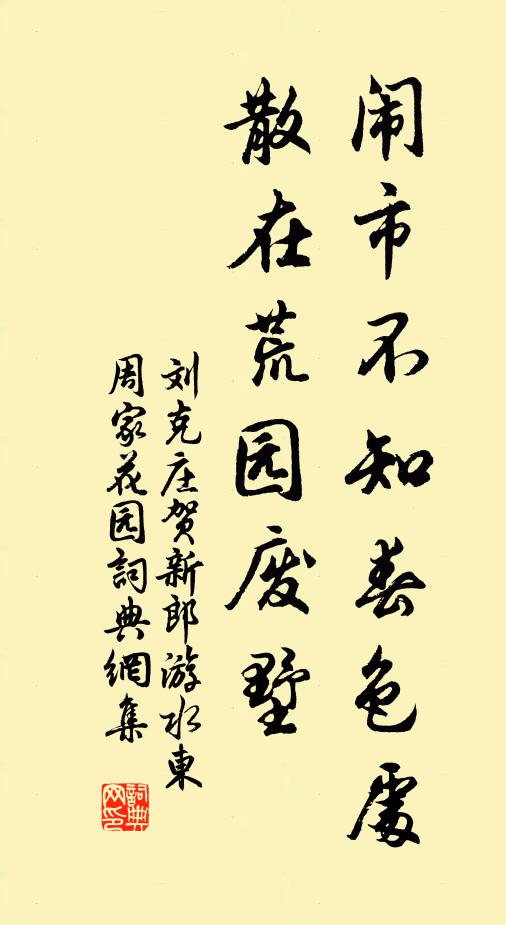 闹市不知春色處
散在荒园废墅
刘克庄贺新郎游水東
周家花园詞典網集
詞典
网印